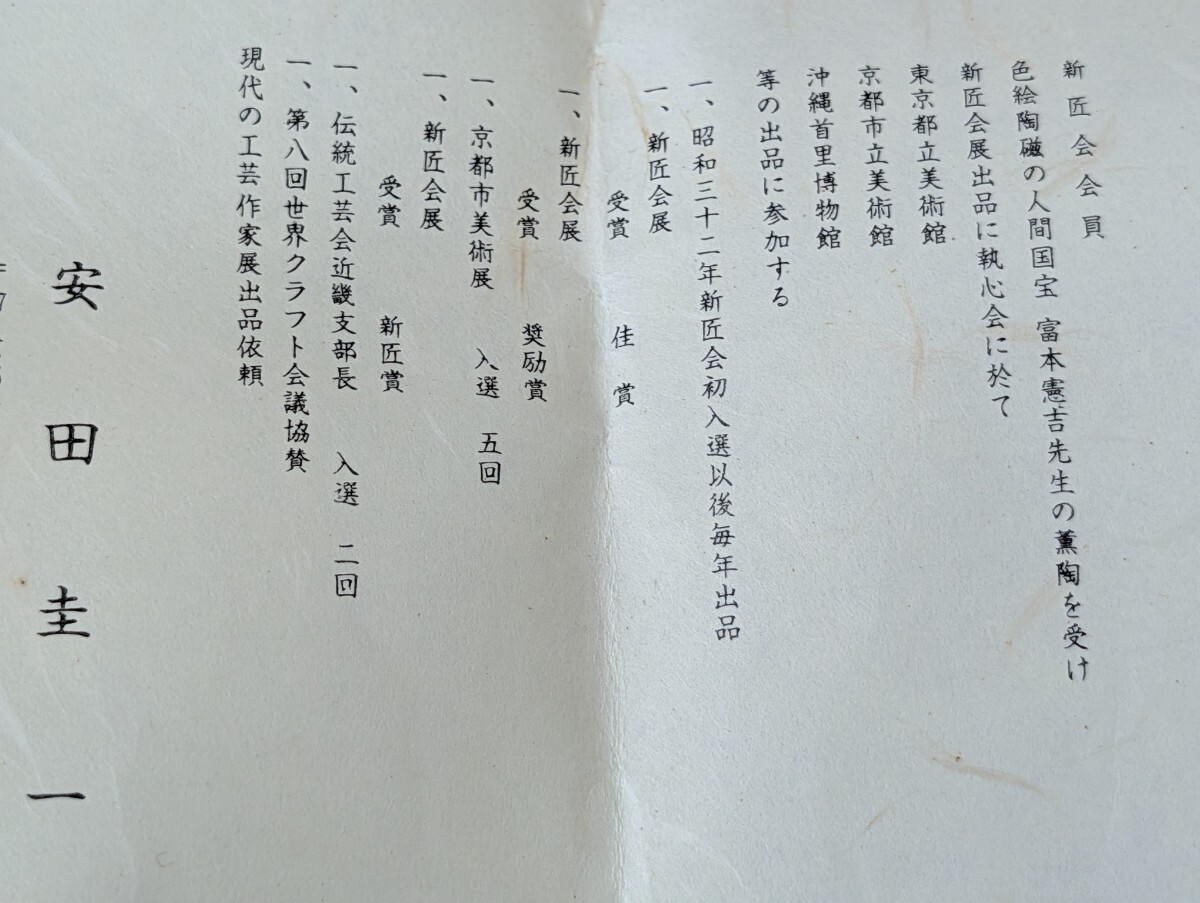 新匠会会員
色絵陶磁の人間国宝 富本憲吉先生の薫陶を受け
新匠会展出品に執心会に於て
東京都立美術館
京都市立美術館
沖縄首里博物館
等の出品に参加する
一、昭和三十二年新匠会初入選以後毎年出品
一、新匠会展
受賞 佳賞
一、新匠会展
受賞 奨励賞
一、京都市美術展 入選 五回
一、新匠会展
受賞 新匠賞
一、伝統工芸会近畿支部長 入選 二回
一、第八回世界クラフト会議協賛
現代の工芸作家展出品依頼
安田圭一